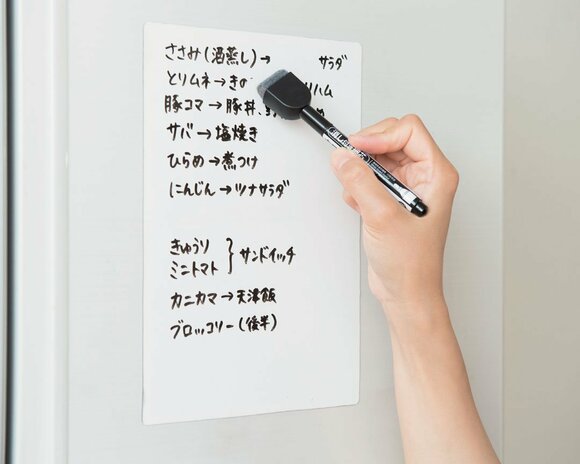 ささみ(酒蒸し)→ サラダ
とりムネ→きの リハム
豚コマ→豚丼、
サバ→塩焼き
ひらめ→煮つけ
にんじん→ツナサラダ
きゅうり
ミニトマト } サンドイッチ
カニカマ→天津飯
ブロッコリー(後半)